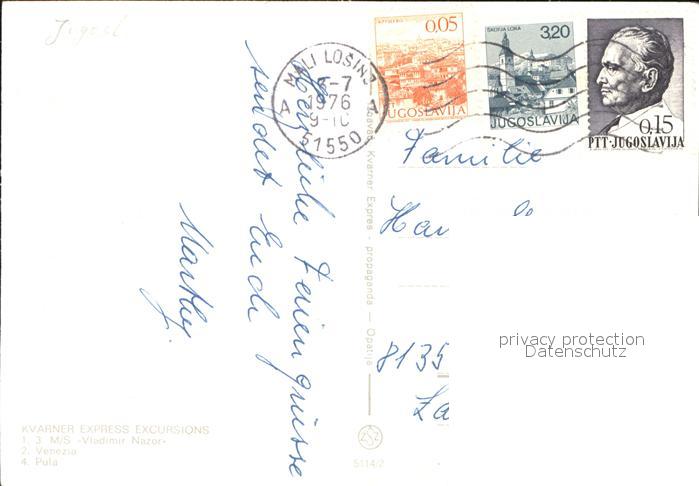 Jugosl
КРУШЕВО
0,05
JUGOSLAVIJA
ŠKOFJA LOKA
3,20
JUGOSLAVIJA
0.15
PTT-JUGOSLAVIJA
MALI LOŠINJ
-7
1976
9-10
51550
A A
Herzliche Feriengrüsse
sendet Euch
Familie
Ha
8135
La
Kvarner Expres - propaganda - Opatija
privacy protection
Datenschutz
KVARNER EXPRESS EXCURSIONS
1. 3 M/S »Vladimir Nazor«
2. Venezia
4. Pula
5114/2